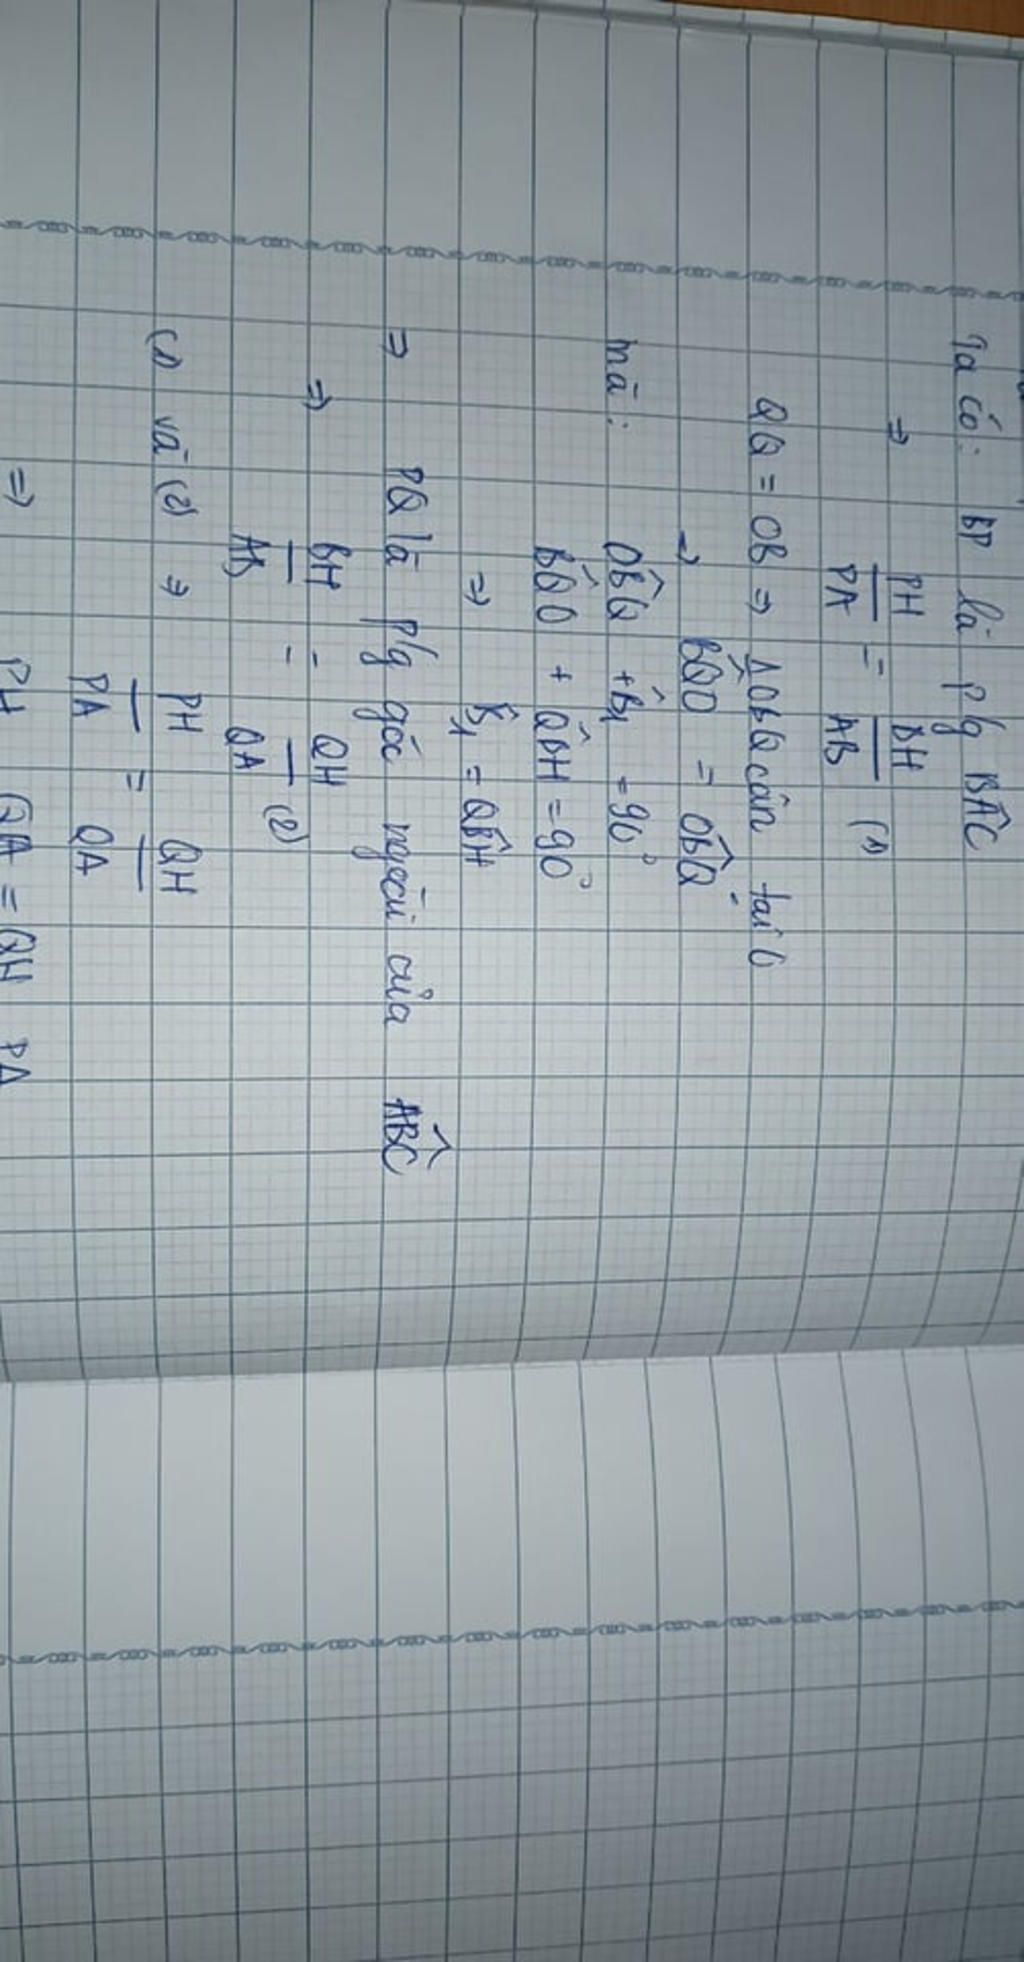 Ta có: BP là p/g BÂC
⇒ PH/PA = BH/AB (1)
QQ = OB ⇒ ΔOBQ cân tại O
⇒ BQ̂O = OB̂Q
mà: OB̂Q + B̂1 = 90°
BQ̂O + QB̂H = 90°
⇒ B̂1 = QB̂H
⇒ PQ là p/g góc ngoài của AB̂C
⇒ BH/AB = QH/QA (2)
(1) và (2) ⇒ PH/PA = QH/QA
⇒ PH QA = QH PA